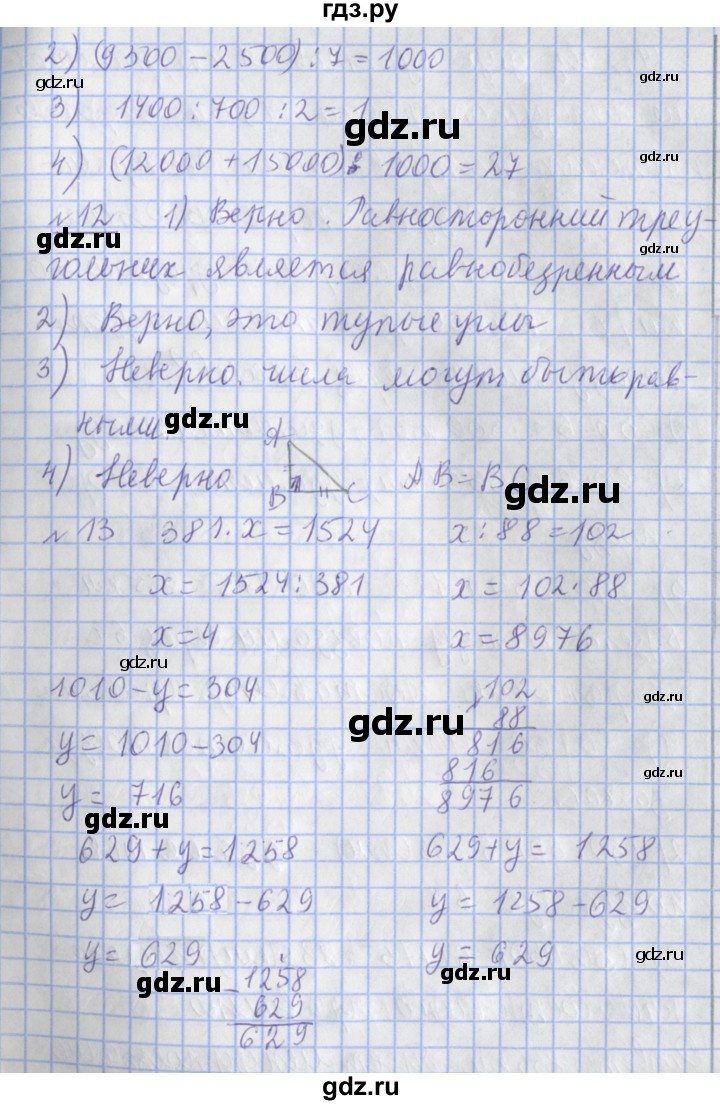 гдз.ру
2) (9500 - 2500) : 7 = 1000
gdz.ru
gdz.ru
3) 1400 : 700 : 2 = 1
gdz.ru
4) (12000 + 15000) : 1000 = 27
gdz.ru
№12 1) Верно. Равносторонний треу-
gdz.ru
gdz.ru
гольник является равнобедренным
2) Верно, это тупые углы
3) Неверно. числа могут быть рав-
ными.
gdz.ru
gdz.ru
4) Неверно A B C AB = BC
№13 381 · x = 1524 x : 88 = 102
x = 1524 : 381 x = 102 · 88
x = 4 x = 8976
gdz.ru
1010 - y = 304 102
gdz.ru
gdz.ru
y = 1010 - 304 88
816
816
gdz.ru
y = 716 8976
gdz.ru
629 + y = 1258 629 + y = 1258
gdz.ru
y = 1258 - 629 y = 1258 - 629
y = 629 y = 629
gdz.ru
gdz.ru
- 1258
629
629
gdz.ru
gdz.ru